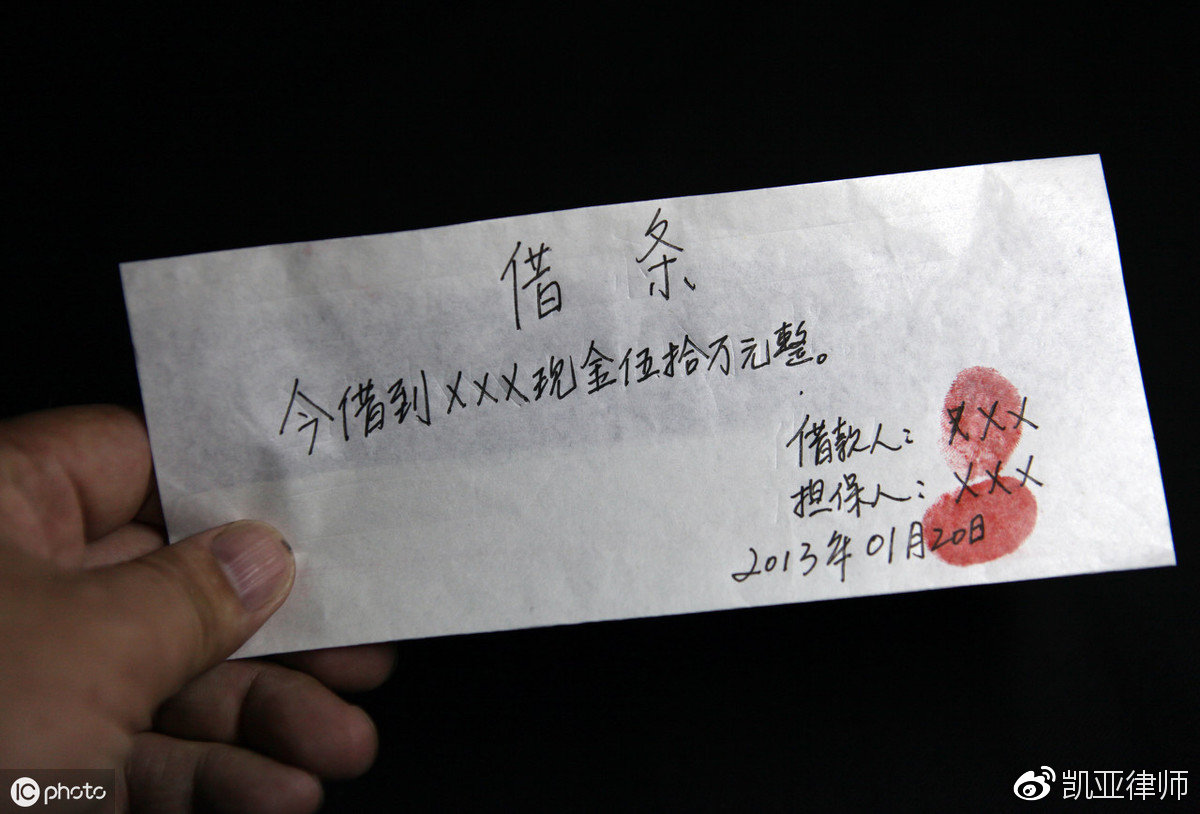 借条
今借到XXX现金伍拾万元整。
借款人：XXX
担保人：XXX
2013年01月20日
IC photo
凯亚律师